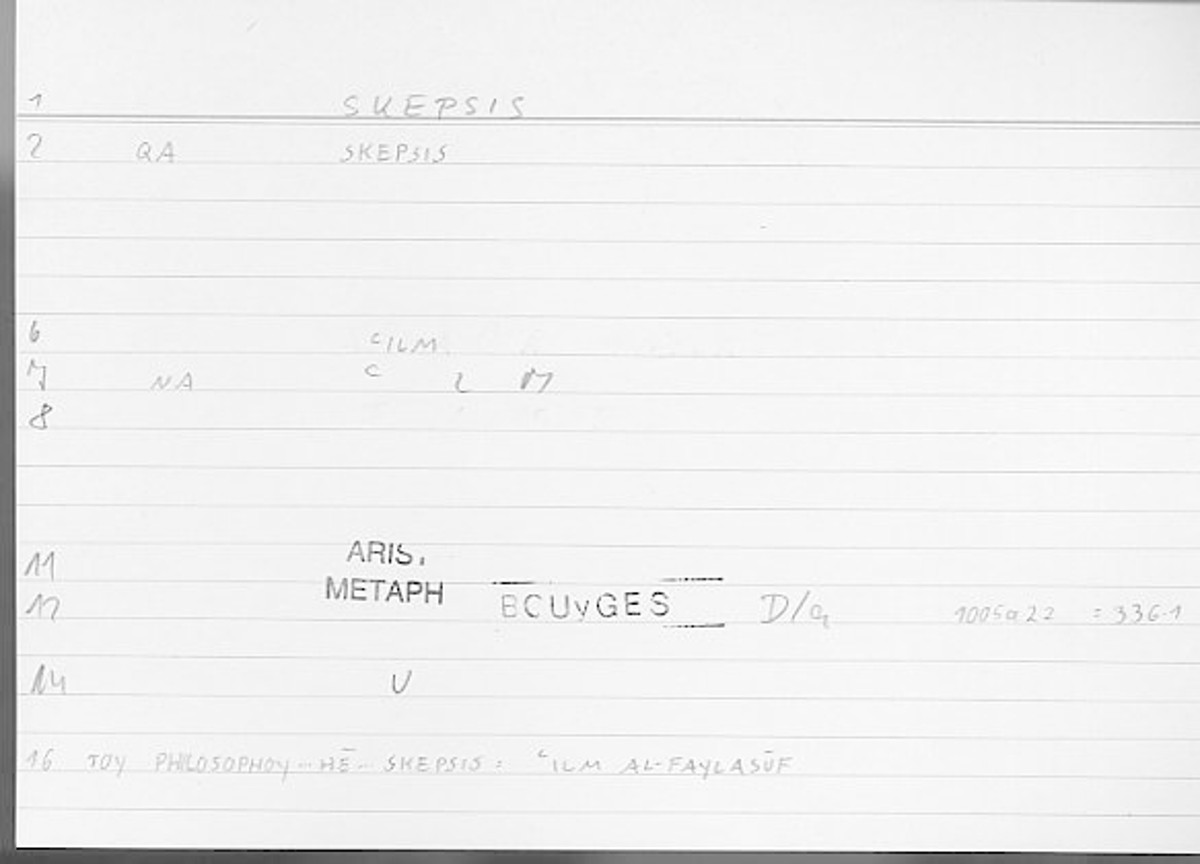 1 SKEPSIS
2 QA SKEPSIS
6 ʿILM
7 NA ʿ L M
8
11 ARIS.
METAPH
12 BOUyGES D/a 1005a22 = 336.1
14 U
16 TOY PHILOSOPHOY ... HĒ ... SKEPSIS : ʿILM AL-FAYLASŪF